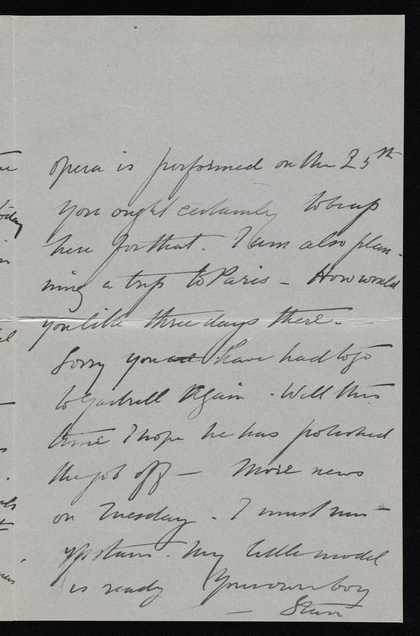 opera is performed on the 25th
You ought certainly to be up
here for that. I am also plan-
ning a trip to Paris – How would
you like three days there. –
Sorry you have had to go
to again. Well this
time I hope he has polished
the job off – More news
on Tuesday. I must run
upstairs. My little model
is ready Your own boy
–
today